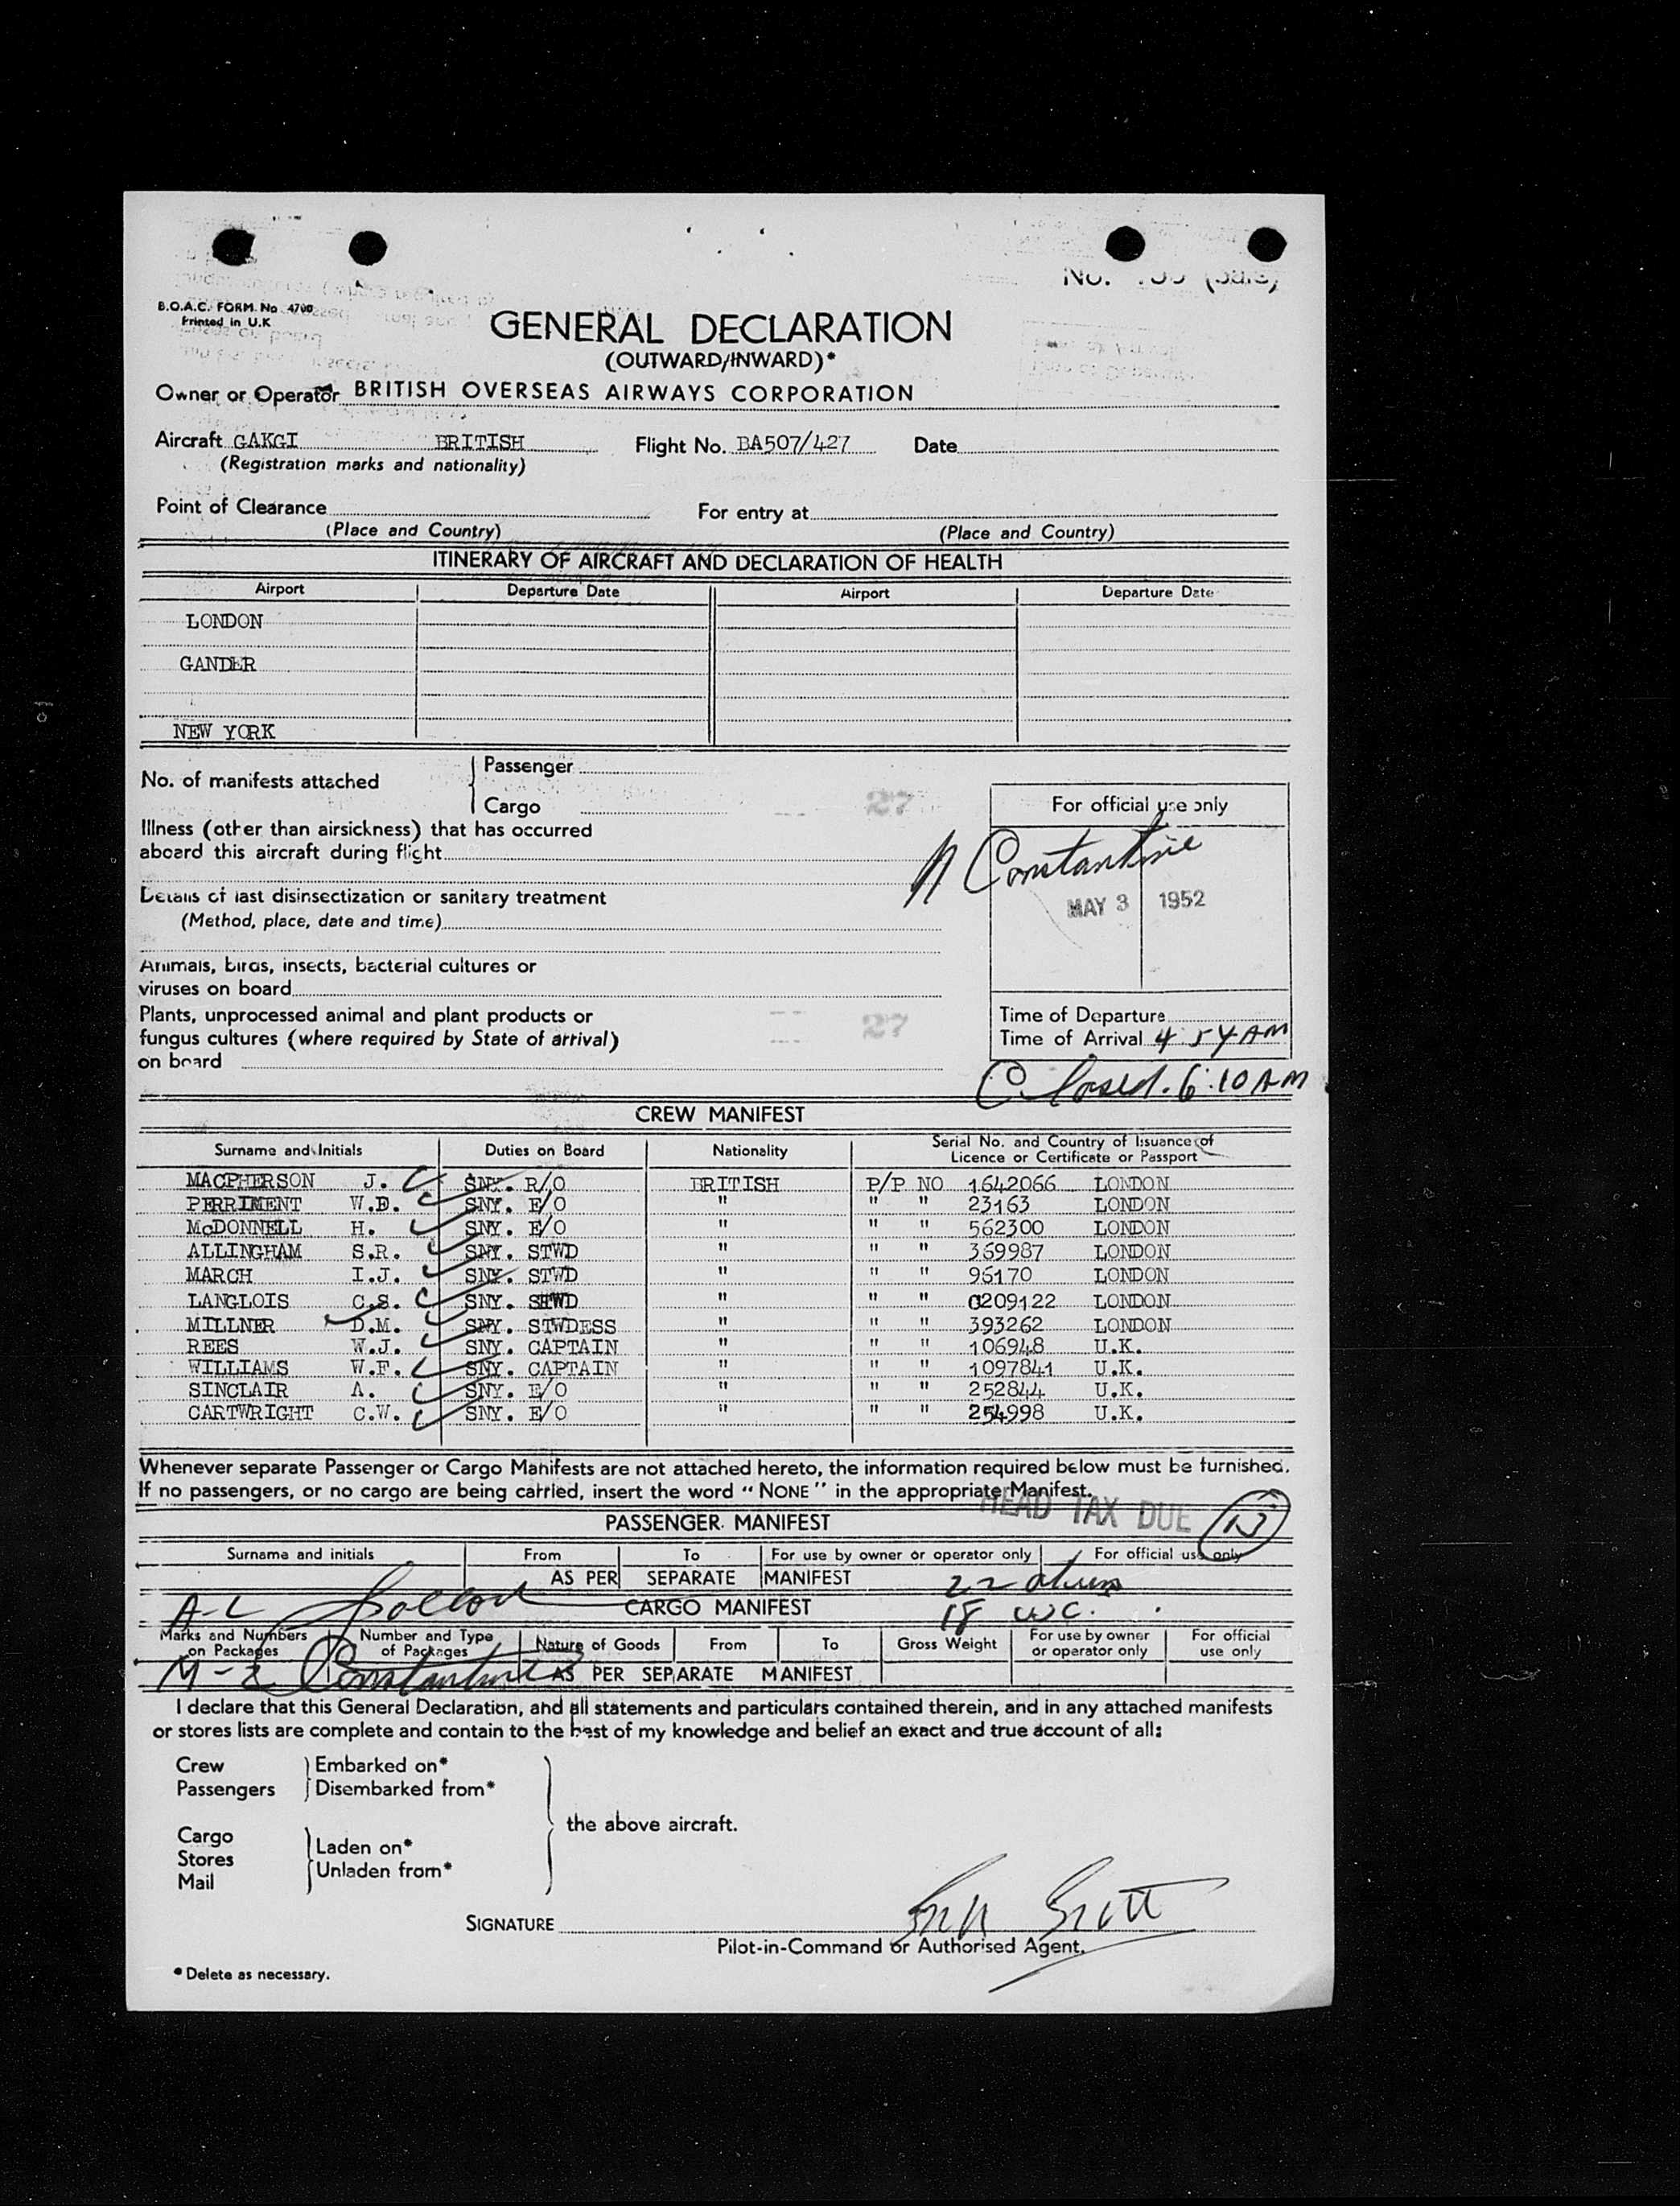 B.O.A.C. FORM. No 4700
Printed in U.K
GENERAL DECLARATION
(OUTWARD/INWARD)*
Owner or Operator BRITISH OVERSEAS AIRWAYS CORPORATION
Aircraft GAKGI BRITISH Flight No. BA507/427 Date
(Registration marks and nationality)
Point of Clearance For entry at
(Place and Country) (Place and Country)
ITINERARY OF AIRCRAFT AND DECLARATION OF HEALTH
Airport Departure Date Airport Departure Date
LONDON
GANDER
NEW YORK
No. of manifests attached
Passenger
Cargo
27
For official use only
Illness (other than airsickness) that has occurred
aboard this aircraft during flight
Constantine
MAY 3 1952
Details of last disinsectization or sanitary treatment
(Method, place, date and time)
Animals, birds, insects, bacterial cultures or
viruses on board
Plants, unprocessed animal and plant products or
fungus cultures (where required by State of arrival)
on board
27
Time of Departure
Time of Arrival 4:54 AM
Closed. 6:10 AM
CREW MANIFEST
Surname and Initials Duties on Board Nationality Serial No. and Country of Issuance of
Licence or Certificate or Passport
MACPHERSON J. SNY. R/O BRITISH P/P NO 1642066 LONDON
PERRIMENT W.E. SNY. E/O " " " 23163 LONDON
McDONNELL H. SNY. E/O " " " 562300 LONDON
ALLINGHAM S.R. SNY. STWD " " " 369987 LONDON
MARCH I.J. SNY. STWD " " " 96170 LONDON
LANGLOIS C.S. SNY. STWD " " " 0209122 LONDON
MILLNER D.M. SNY. STWDESS " " " 393262 LONDON
REES W.J. SNY. CAPTAIN " " " 106948 U.K.
WILLIAMS W.F. SNY. CAPTAIN " " " 1097841 U.K.
SINCLAIR A. SNY. E/O " " " 252844 U.K.
CARTWRIGHT C.W. SNY. E/O " " " 254998 U.K.
Whenever separate Passenger or Cargo Manifests are not attached hereto, the information required below must be furnished.
If no passengers, or no cargo are being carried, insert the word "NONE" in the appropriate Manifest.
HEAD TAX DUE
PASSENGER MANIFEST
Surname and initials From To For use by owner or operator only For official use only
AS PER SEPARATE MANIFEST 22
A-L CARGO MANIFEST 18 WC.
Marks and Numbers on Packages Number and Type of Packages Nature of Goods From To Gross Weight For use by owner or operator only For official use only
M-Z Constantine AS PER SEPARATE MANIFEST
I declare that this General Declaration, and all statements and particulars contained therein, and in any attached manifests
or stores lists are complete and contain to the best of my knowledge and belief an exact and true account of all:
Crew Embarked on*
Passengers Disembarked from*
the above aircraft.
Cargo
Stores
Mail
Laden on*
Unladen from*
SIGNATURE
Pilot-in-Command or Authorised Agent.
* Delete as necessary.